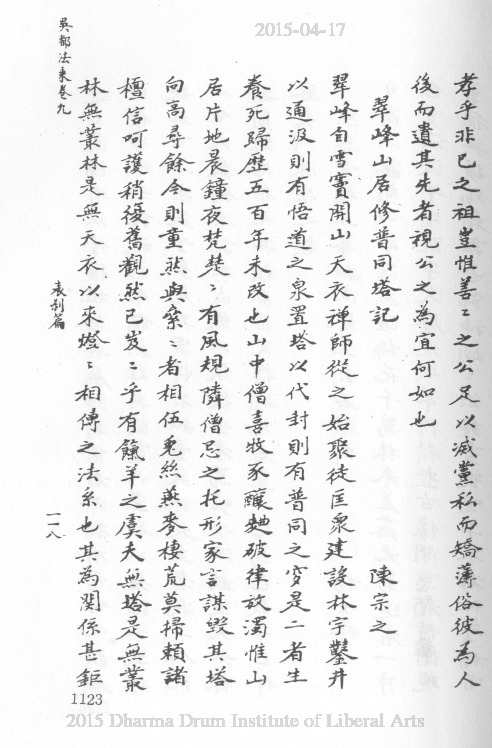 2015-04-17
孝乎非已之祖豈惟善〻之公足以滅黨私而矯薄俗彼為人
後而遺其先者視公之為宜何如也
翠峰山居修普同塔記　陳宗之
翠峰自雪竇開山天衣禪師從之始聚徒匡衆建設林宇鑿井
以通汲則有悟道之泉置塔以代封則有普同之穸是二者生
養死歸歷五百年未改也山中僧喜牧豕釀麯破律放濁惟山
居片地晨鐘夜梵楚〻有風規隣僧忌之托形家言謀毀其塔
向高尋餘今則童然與纍〻者相伍兎絲燕麥棲荒莫掃頼諸
檀信呵護稍復舊觀然已岌〻乎有餼羊之虞夫無塔是無叢
林無叢林是無天衣以來燈〻相傳之法系也其為関係甚鉅
吳都法乘卷九
表刹篇
一一八
1123
2015 Dharma Drum Institute of Liberal Arts